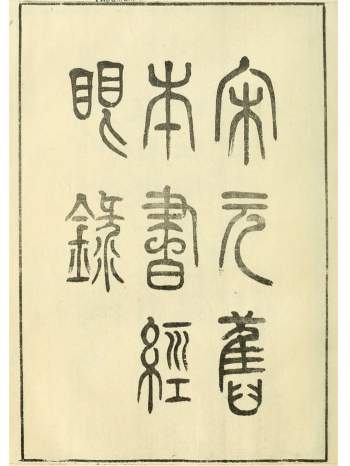 宋元舊
本書經
眼錄